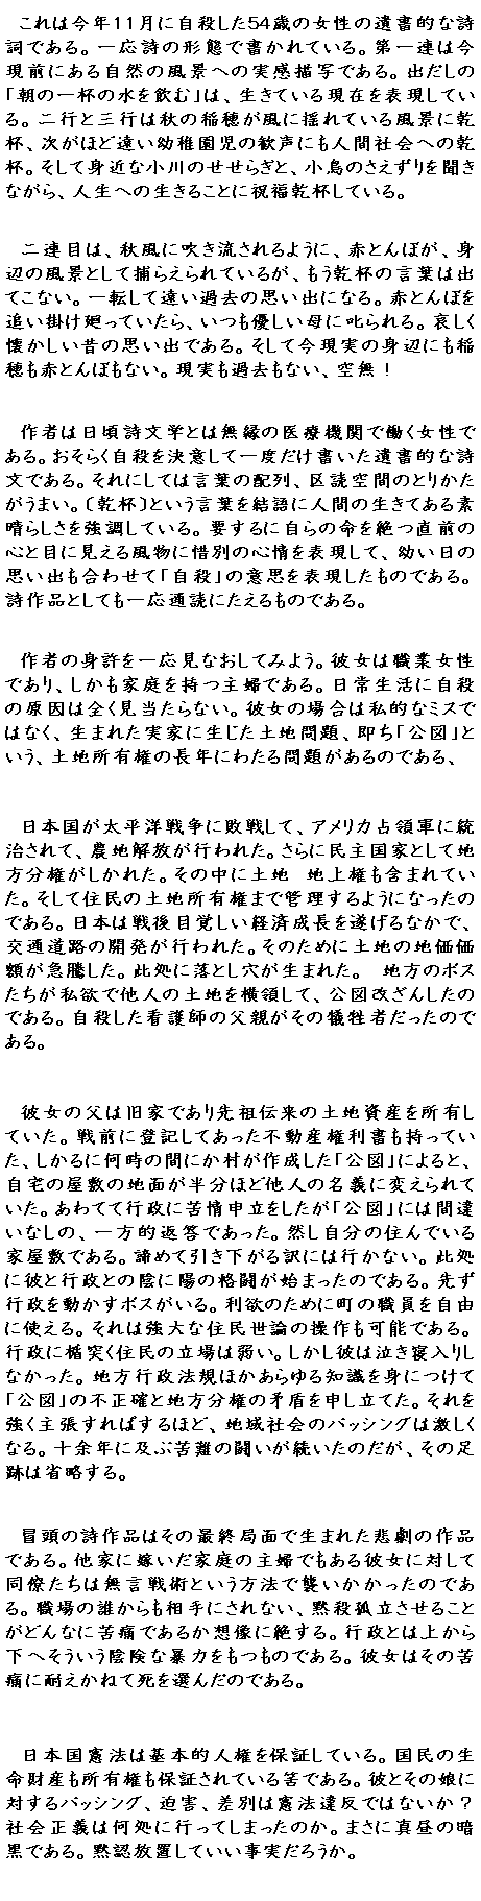 これは今年11月に自殺した54歳の女性の遺書的な詩
詞である。一応詩の形態で書かれている。第一連は今
現前にある自然の風景への実感描写である。出だしの
「朝の一杯の水を飲む」は、生きている現在を表現してい
る。二行と三行は秋の稲穂が風に揺れている風景に乾
杯、次がほど遠い幼稚園児の歓声にも人間社会への乾
杯。そして身近な小川のせせらぎと、小鳥のさえずりを聞き
ながら、人生への生きることに祝福乾杯している。
二連目は、秋風に吹き流されるように、赤とんぼが、身
辺の風景として捕らえられているが、もう乾杯の言葉は出
てこない。一転して遠い過去の思い出になる。赤とんぼを
追い掛け廻っていたら、いつも優しい母に叱られる。哀しく
懐かしい昔の思い出である。そして今現実の身辺にも稲
穂も赤とんぼもない。現実も過去もない、空無！
作者は日頃詩文学とは無縁の医療機関で働く女性で
ある。おそらく自殺を決意して一度だけ書いた遺書的な詩
文である。それにしては言葉の配列、区読空間のとりかた
がうまい。〔乾杯〕という言葉を結語に人間の生きてある素
晴らしさを強調している。要するに自らの命を絶つ直前の
心と目に見える風物に惜別の心情を表現して、幼い日の
思い出も合わせて「自殺」の意思を表現したものである。
詩作品としても一応通読にたえるものである。
作者の身許を一応見なおしてみよう。彼女は職業女性
であり、しかも家庭を持つ主婦である。日常生活に自殺
の原因は全く見当たらない。彼女の場合は私的なミスで
はなく、生まれた実家に生じた土地問題、即ち「公図」と
いう、土地所有権の長年にわたる問題があるのである、
日本国が太平洋戦争に敗戦して、アメリカ占領軍に統
治されて、農地解放が行われた。さらに民主国家として地
方分権がしかれた。その中に土地　地上権も含まれてい
た。そして住民の土地所有権まで管理するようになったの
である。日本は戦後目覚しい経済成長を遂げるなかで、
交通道路の開発が行われた。そのために土地の地価価
額が急騰した。此処に落とし穴が生まれた。　地方のボス
たちが私欲で他人の土地を横領して、公図改ざんしたの
である。自殺した看護師の父親がその犠牲者だったので
ある。
彼女の父は旧家であり先祖伝来の土地資産を所有し
ていた。戦前に登記してあった不動産権利書も持ってい
た、しかるに何時の間にか村が作成した「公図」によると、
自宅の屋敷の地面が半分ほど他人の名義に変えられて
いた。あわてて行政に苦情申立をしたが「公図」には間違
いなしの、一方的返答であった。然し自分の住んでいる
家屋敷である。諦めて引き下がる訳には行かない。此処
に彼と行政との陰に陽の格闘が始まったのである。先ず
行政を動かすボスがいる。利欲のために町の職員を自由
に使える。それは強大な住民世論の操作も可能である。
行政に楯突く住民の立場は弱い。しかし彼は泣き寝入りし
なかった。地方行政法規ほかあらゆる知識を身につけて
「公図」の不正確と地方分権の矛盾を申し立てた。それを
強く主張すればするほど、地域社会のバッシングは激しく
なる。十余年に及ぶ苦難の闘いが続いたのだが、その足
跡は省略する。
冒頭の詩作品はその最終局面で生まれた悲劇の作品
である。他家に嫁いだ家庭の主婦でもある彼女に対して
同僚たちは無言戦術という方法で襲いかかったのであ
る。職場の誰からも相手にされない、黙殺孤立させること
がどんなに苦痛であるか想像に絶する。行政とは上から
下へそういう陰険な暴力をもつものである。彼女はその苦
痛に耐えかねて死を選んだのである。
日本国憲法は基本的人権を保証している。国民の生
命財産も所有権も保証されている筈である。彼とその娘に
対するバッシング、迫害、差別は憲法違反ではないか？
社会正義は何処に行ってしまったのか。まさに真昼の暗
黒である。黙認放置していい事実だろうか。